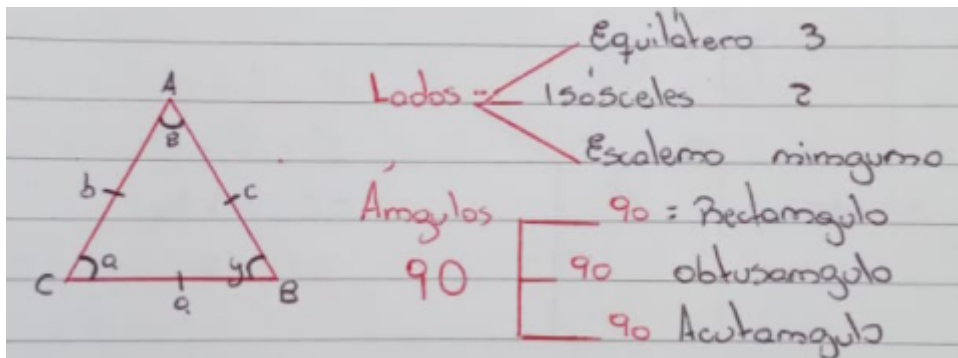 A
B
b
c
a
y
C
a
B
Lados
Equilátero 3
Isósceles 2
Escaleno ninguno
Ángulos
90
90 = Rectangulo
90 obtusangulo
90 Acutangulo